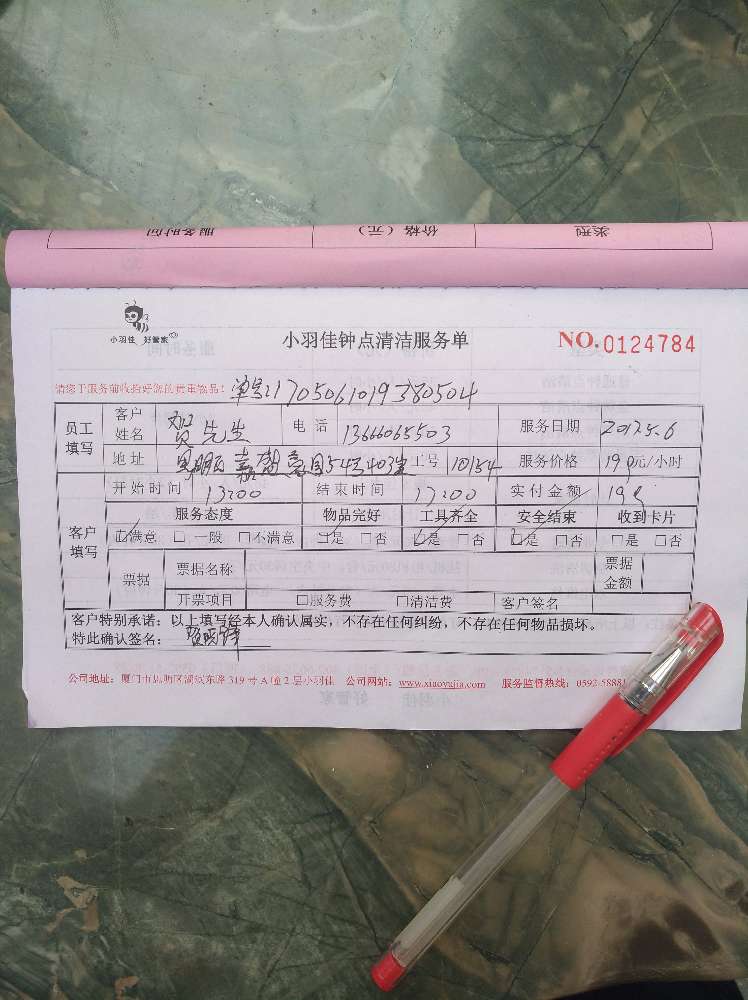 服务时间 价格（元） 类型
小羽佳 好管家
小羽佳钟点清洁服务单 NO.0124784
请您于服务前收拾好您的贵重物品！ 单号:170506101938 0504
员工填写 客户姓名 贺先生 电话 13666065503 服务日期 2017.5.6
地址 54号403室 工号 10154 服务价格 19 元/小时
开始时间 13:00 结束时间 17:00 实付金额 19
客户填写 服务态度 物品完好 工具齐全 安全结束 收到卡片
☑满意 □一般 □不满意 ☑是 □否 ☑是 □否 ☑是 □否 □是 □否
票据 票据名称 票据金额
开票项目 □服务费 □清洁费 客户签名
客户特别承诺：以上填写经本人确认属实，不存在任何纠纷，不存在任何物品损坏。
特此确认签名：
公司地址：厦门市思明区湖滨东路 319 号 A 幢 2 层小羽佳 公司网站：www.xiaoyujia.com 服务监督热线：0592-58881